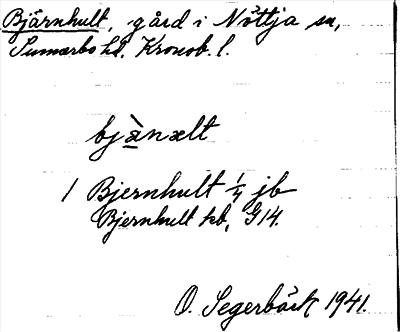 Bjärnhult, gård i Nöttja sn,
Sunnerbo hd. Kronob. l.
bjä̀nælt
1 Bjernhult 1/4 jb
Bjernhult kb, G14.
O. Segerbäck 1941.